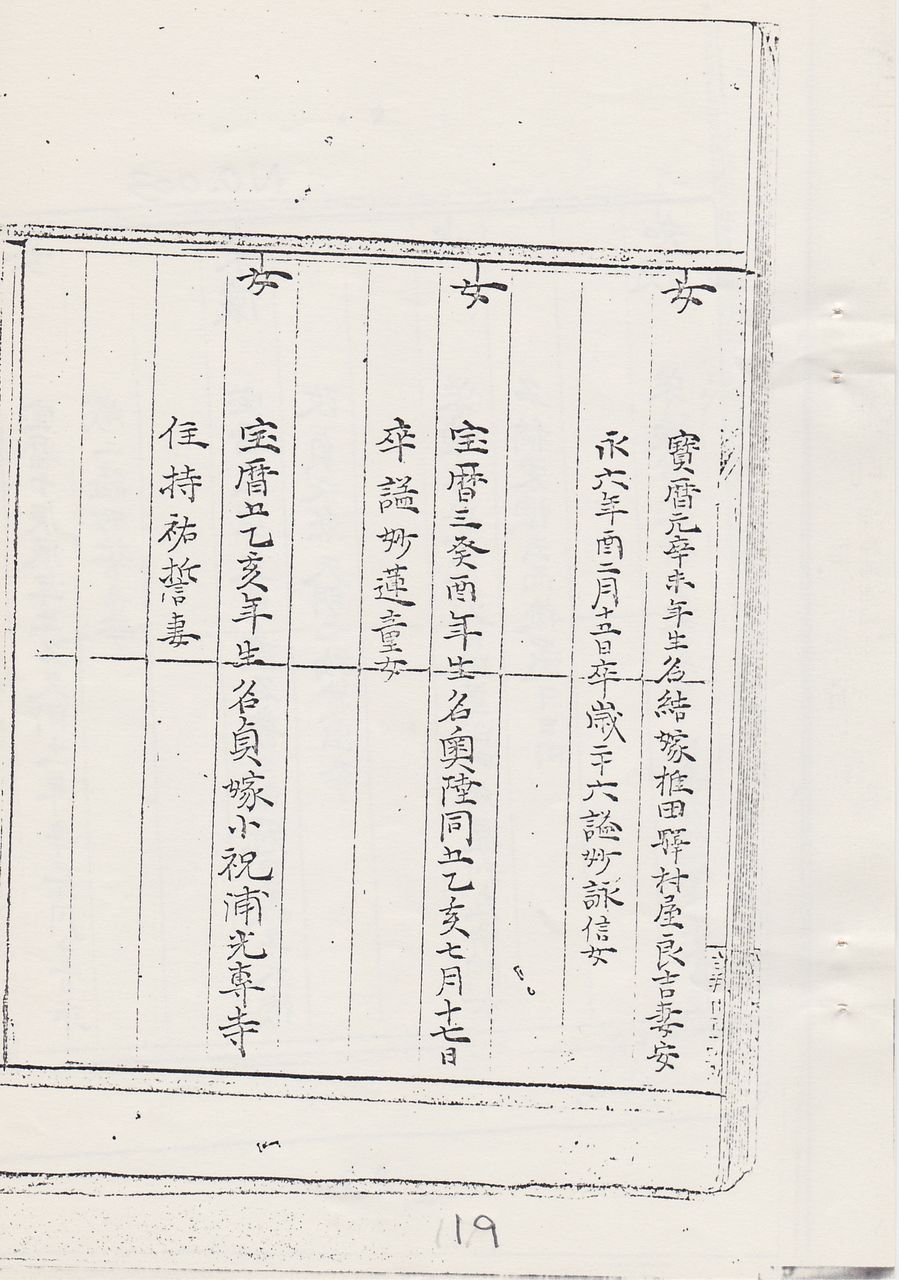 女
寳暦元辛未年生名結嫁椎田驛村屋良吉妻安
永六年酉二月十五日卒歳二十六謚妙詠信女
女
宝暦三癸酉年生名奥陸同五乙亥七月十七日
卒謚妙蓮童女
女
宝暦五乙亥年生名貞嫁小祝浦光專寺
住持祐誓妻
19